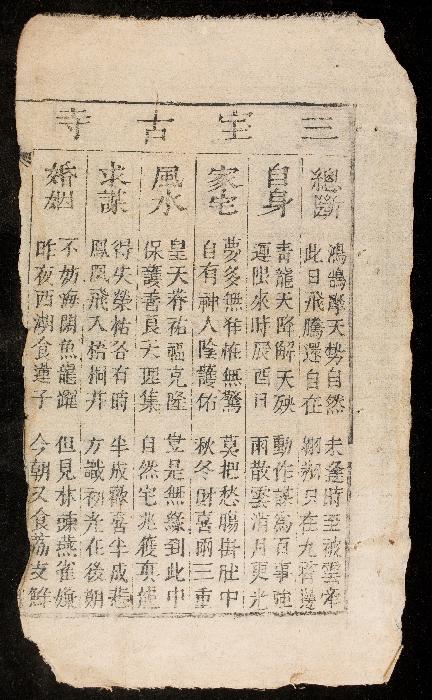 三宝古寺
總斷
鴻鵠摩天勢自然 未逢時至破雲
此日飛騰還自在 翱翔只在九霄邊
自身
青龍天降解天殃 動作謀為百事強
運限來時辰酉日 雨散雲消月更光
家宅
夢多無祥惟無驚 莫把愁腸掛肚中
自有神人陰護佑 秋冬財喜兩三重
風水
皇天眷祐福克隆 豈是無緣到此中
保護善良天理集 自然宅兆獲真龍
求謀
得失榮枯各有時 半成歡喜半成悲
鳳凰飛入梧桐井 方識初光在後
婚姻
不妨海闊魚龍躍 但見林疎燕雀嫌
昨夜西湖食蓮子 今朝又食荔支鮮